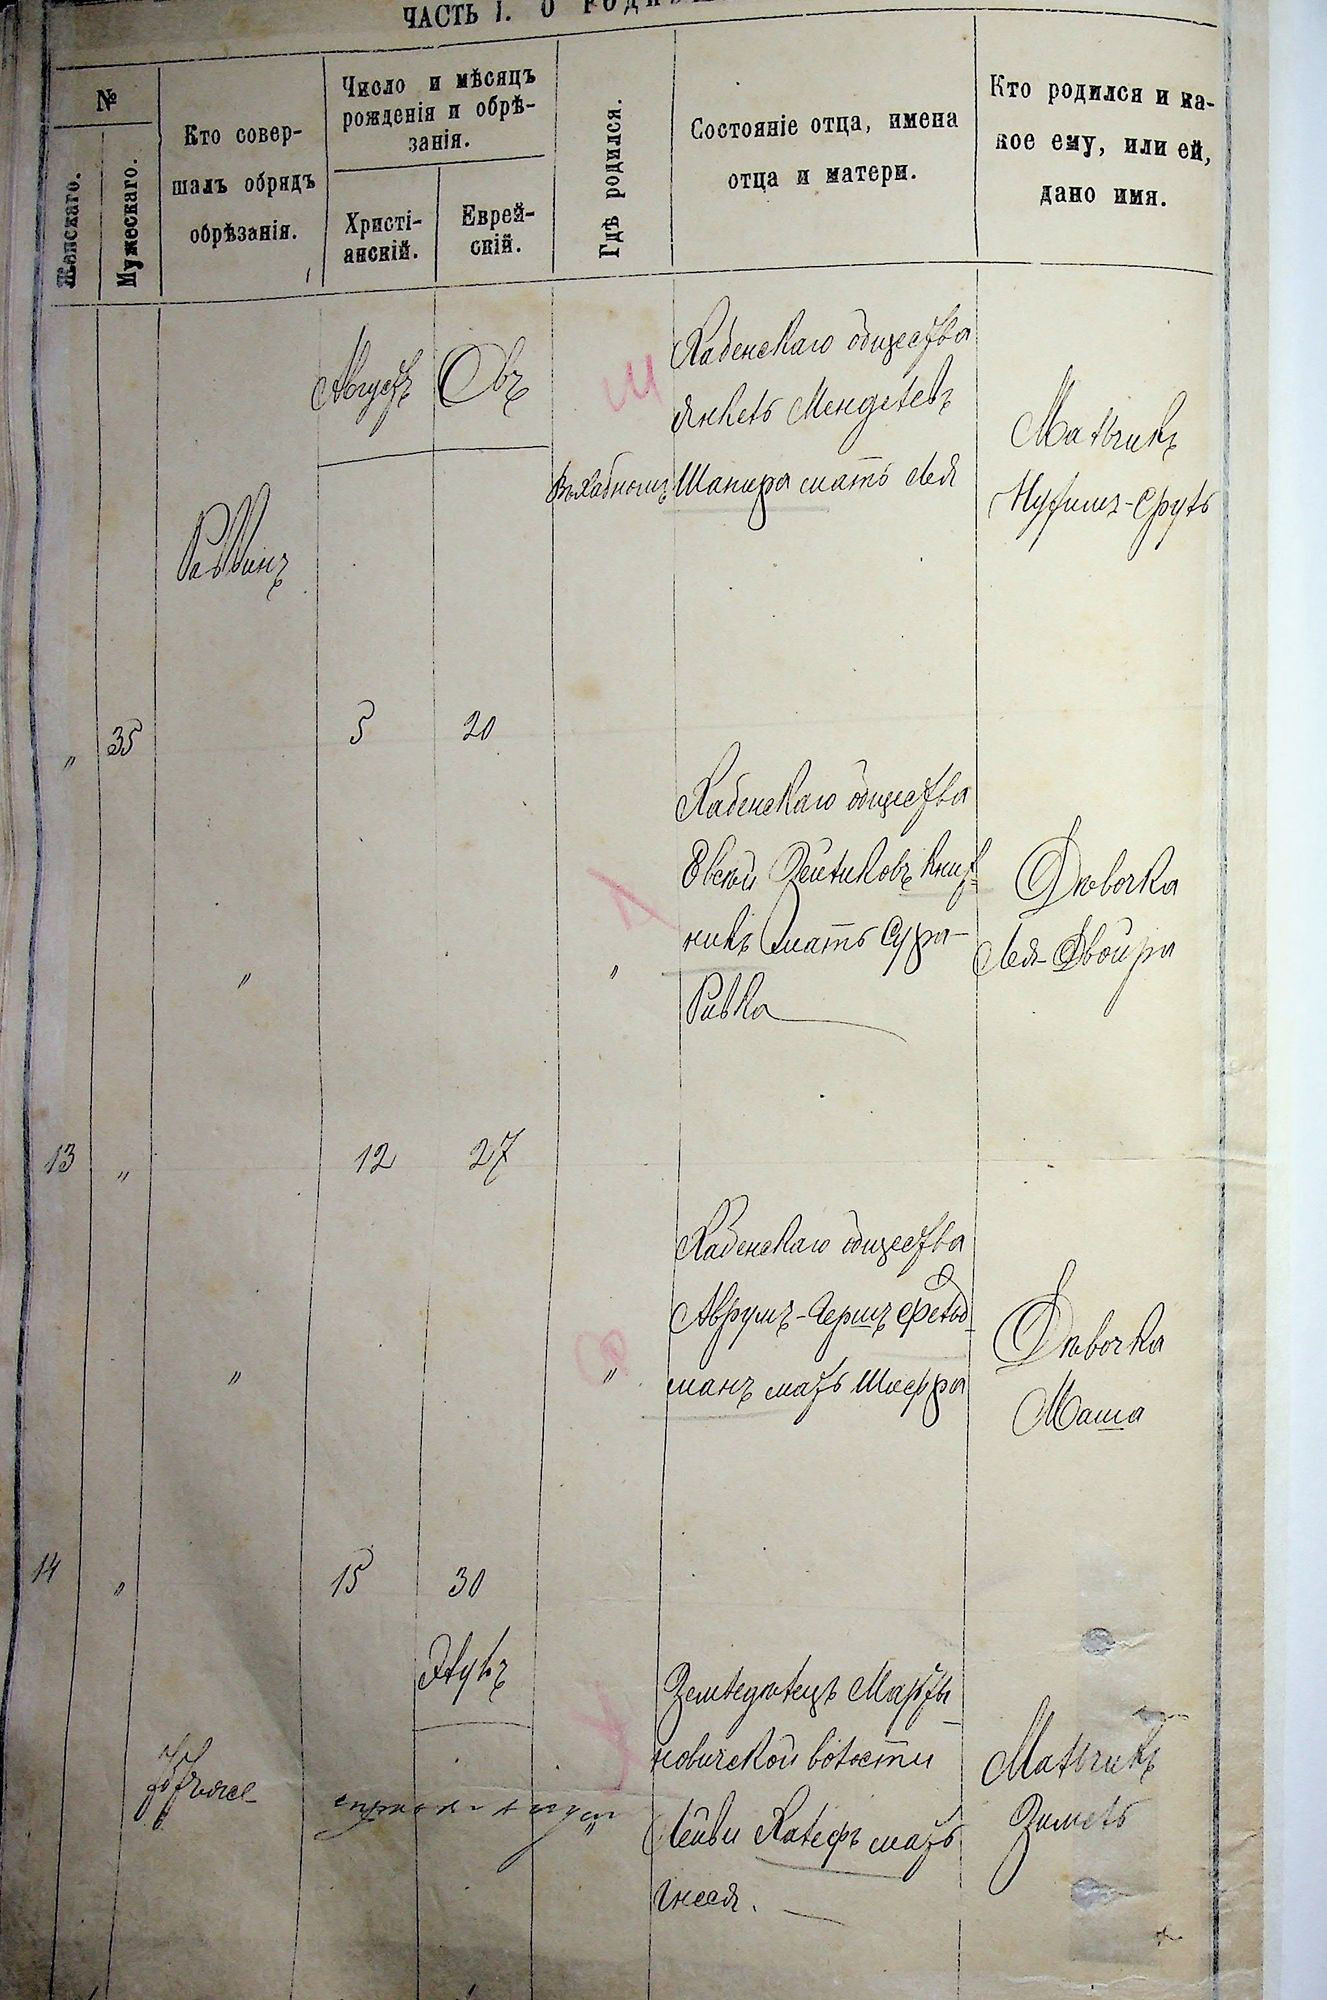 ЧАСТЬ I. О
№
Женскаго.
Мужескаго.
Кто совер-
шалъ обрядъ
обрѣзанія.
Число и мѣсяцъ
рожденія и обрѣ-
занія.
Христі-
анскій.
Еврей-
скій.
Гдѣ родился.
Состояніе отца, имена
отца и матери.
Кто родился и ка-
кое ему, или ей,
дано имя.
„
35
Раввинъ
Августъ
5
Овъ
20
Ш
Хабенскаго общества
Янкель Менделевъ
Шапира мать Лея
Мальчикъ
Нухимъ-Сруль
13
„
„
12
27
„
Хабенскаго общества
Овсѣй Зейликовъ Книж-
никъ мать Сура-
Ривка
Дѣвочка
Лея-Двойра
14
„
„
15
30
Ф
„
Хабенскаго общества
Аврумъ-Гершъ Фельд-
манъ мать Шифра
Дѣвочка
Маша
Элулъ
„
Земледѣлецъ Марты-
новичской волости
Лейви Халефъ мать
Гнеся.
Мальчикъ
Зимель